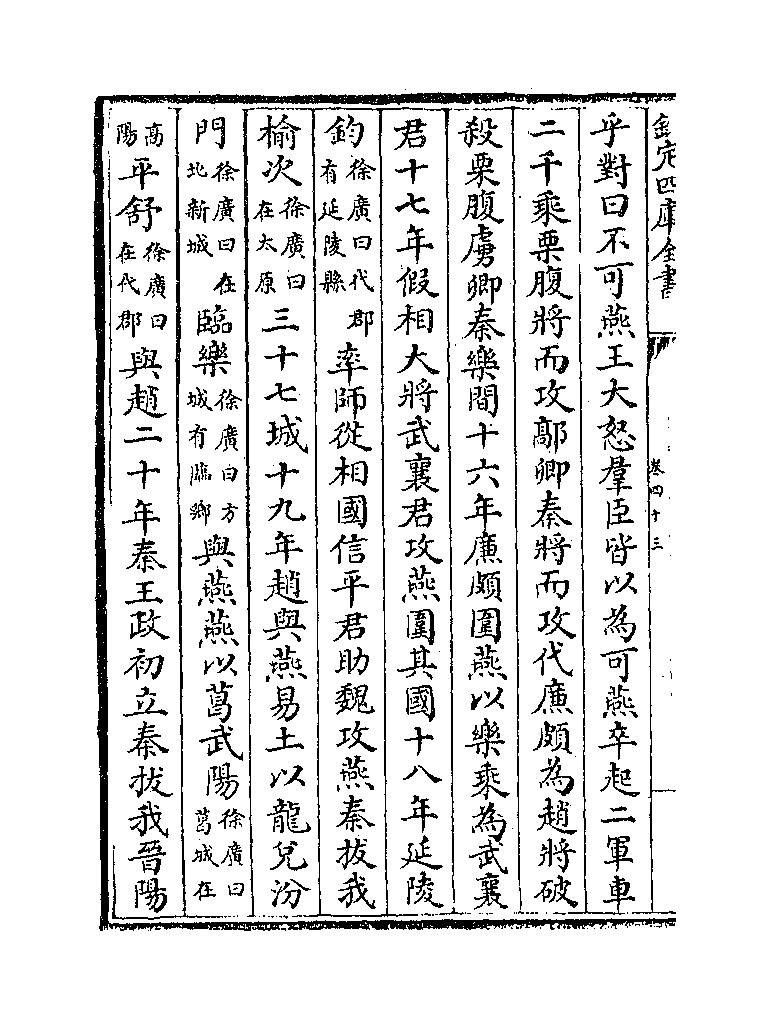 欽定四庫全書
卷四十三
乎對曰不可燕王大怒羣臣皆以為可燕卒起二軍車
二千乘栗腹將而攻鄗卿秦將而攻代廉頗為趙將破
殺栗腹虜卿秦樂間十六年廉頗圍燕以樂乘為武襄
君十七年假相大將武襄君攻燕圍其國十八年延陵
鈞徐廣曰代郡有延陵縣率師從相國信平君助魏攻燕秦拔我
榆次徐廣曰在太原三十七城十九年趙與燕易土以龍兌汾
門徐廣曰在北新城臨樂徐廣曰方城有臨鄉與燕燕以葛武陽徐廣曰葛城在
高陽平舒徐廣曰在代郡與趙二十年秦王政初立秦拔我晉陽